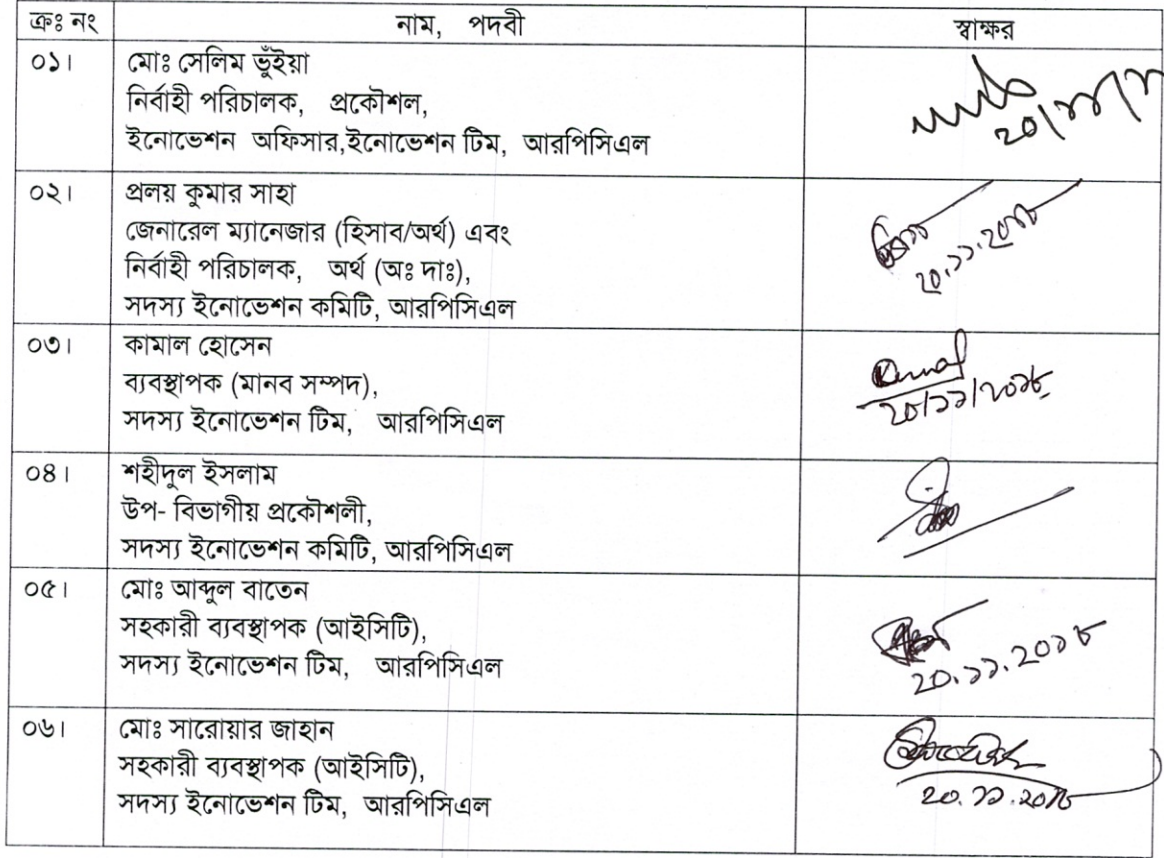 ক্রঃ নং নাম, পদবী স্বাক্ষর
০১। মোঃ সেলিম ভুঁইয়া
নির্বাহী পরিচালক, প্রকৌশল,
ইনোভেশন অফিসার,ইনোভেশন টিম, আরপিসিএল
০২। প্রলয় কুমার সাহা
জেনারেল ম্যানেজার (হিসাব/অর্থ) এবং
নির্বাহী পরিচালক, অর্থ (অঃ দাঃ),
২০.১১.২০১৮
সদস্য ইনোভেশন কমিটি, আরপিসিএল
০৩। কামাল হোসেন
ব্যবস্থাপক (মানব সম্পদ),
২০/১১/২০১৮
সদস্য ইনোভেশন টিম, আরপিসিএল
০৪। শহীদুল ইসলাম
উপ- বিভাগীয় প্রকৌশলী,
সদস্য ইনোভেশন কমিটি, আরপিসিএল
০৫। মোঃ আব্দুল বাতেন
সহকারী ব্যবস্থাপক (আইসিটি),
সদস্য ইনোভেশন টিম, আরপিসিএল
২০.১১.২০১৮
০৬। মোঃ সারোয়ার জাহান
সহকারী ব্যবস্থাপক (আইসিটি),
সদস্য ইনোভেশন টিম, আরপিসিএল
২০.১১.২০১৮